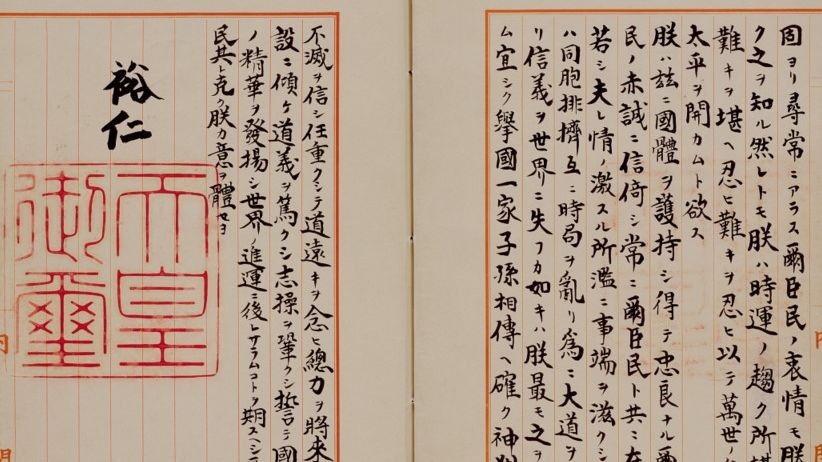 固ヨリ尋常ニアラス爾臣民ノ衷情モ朕
ク之ヲ知ル然レトモ朕ハ時運ノ趨ク所堪
難キヲ堪ヘ忍ヒ難キヲ忍ヒ以テ萬世ノ
太平ヲ開カムト欲ス
朕ハ茲ニ國體ヲ護持シ得テ忠良ナル爾
民ノ赤誠ニ信倚シ常ニ爾臣民ト共ニ在
若シ夫レ情ノ激スル所濫ニ事端ヲ滋クシ
ハ同胞排擠互ニ時局ヲ亂リ爲ニ大道ヲ
リ信義ヲ世界ニ失フカ如キハ朕最モ之ヲ
ム宜シク擧國一家子孫相傳ヘ確ク神州
不滅ヲ信シ任重クシテ道遠キヲ念ヒ總力ヲ將來
設ニ傾ケ道義ヲ篤クシ志操ヲ鞏クシ誓テ國
ノ精華ヲ發揚シ世界ノ進運ニ後レサラムコトヲ期スヘシ
民其レ克ク朕カ意ヲ體セヨ
裕仁
天皇
御璽